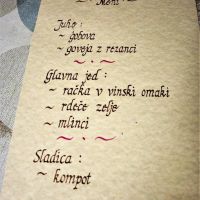 Meni
Juhe :
~ gobova
~ goveja z rezanci
Glavna jed :
~ račka v vinski omaki
~ rdeče zelje
~ mlinci
Sladica :
~ kompot